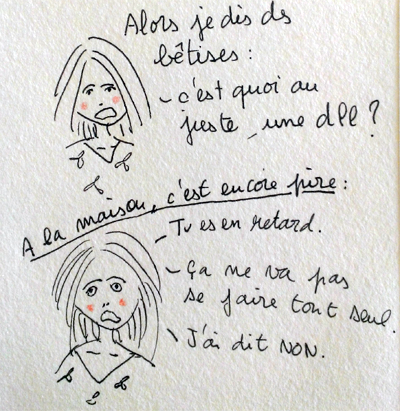 Alors je dis des
bêtises :
- c'est quoi au
juste, une dll ?
A la maison, c'est encore pire :
- Tu es en retard.
- Ça ne va pas
se faire tout seul.
- J'ai dit NON.